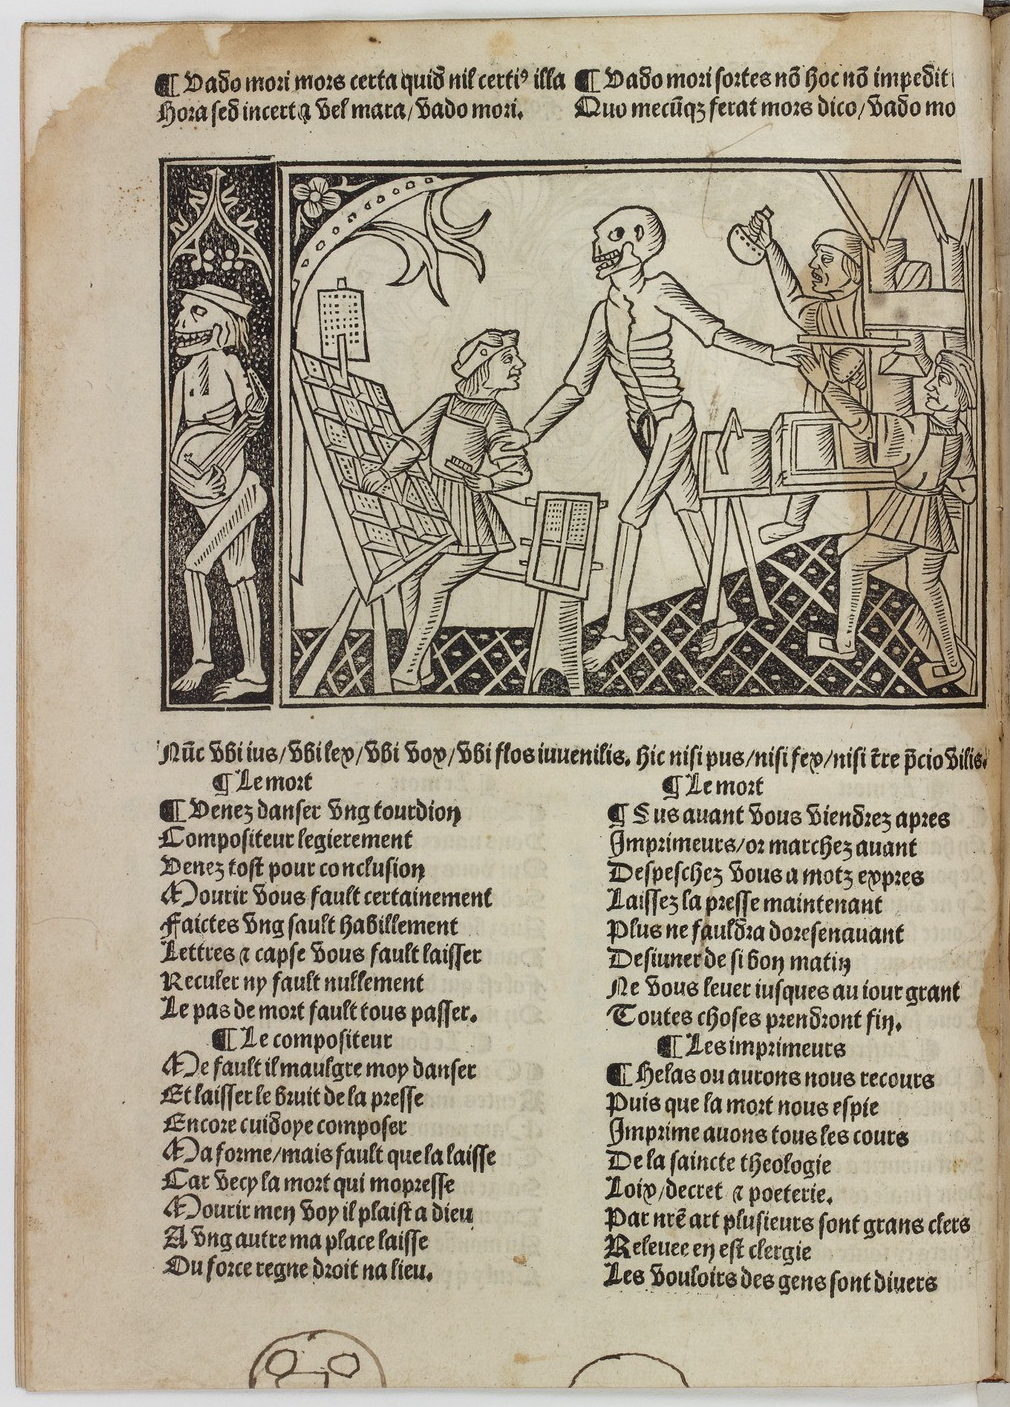 ¶ Vado mori mors certa quid nil certiꝰ illa
Hora sed incerta ⁊ vel mara/vado mori.
¶ Vado mori sortes nõ hoc nõ impedit
Quo mecũqꝫ ferat mors dico/vado mo
Nũc vbi ius/vbi lex/vbi vox/vbi flos iuuenilis. Hic nisi pus/nisi fex/nisi t̃re p̃cio vilis.
¶ Le mort
¶ Venez danser vng tourdion
Compositeur legierement
Venez tost pour conclusion
Mourir vous fault certainement
Faictes vng sault habillement
Lettres ⁊ capse vous fault laisser
Reculer ny fault nullement
Le pas de mort fault tous passer.
¶ Le compositeur
Me fault il maulgre moy danser
Et laisser le bruit de la presse
Encore cuidoye composer
Ma forme/mais fault que la laisse
Car vecy la mort qui mopresse
Mourir men voy il plaist a dieu
A vng autre ma place laisse
Ou force regne droit na lieu.
¶ Le mort
¶ Sus auant vous viendrez apres
Imprimeurs/or marchez auant
Despeschez vous a motz expres
Laissez la presse maintenant
Plus ne fauldra doresenauant
Desiuner de si bon matin
Ne vous leuer iusques au iour grant
Toutes choses prendront fin.
¶ Les imprimeurs
¶ Helas ou aurons nous recours
Puis que la mort nous espie
Imprime auons tous les cours
De la saincte theologie
Loix/decret ⁊ poeterie.
Par nr̃e art plusieurs sont grans clers
Releuee en est clergie
Les vouloirs des gens sont diuers